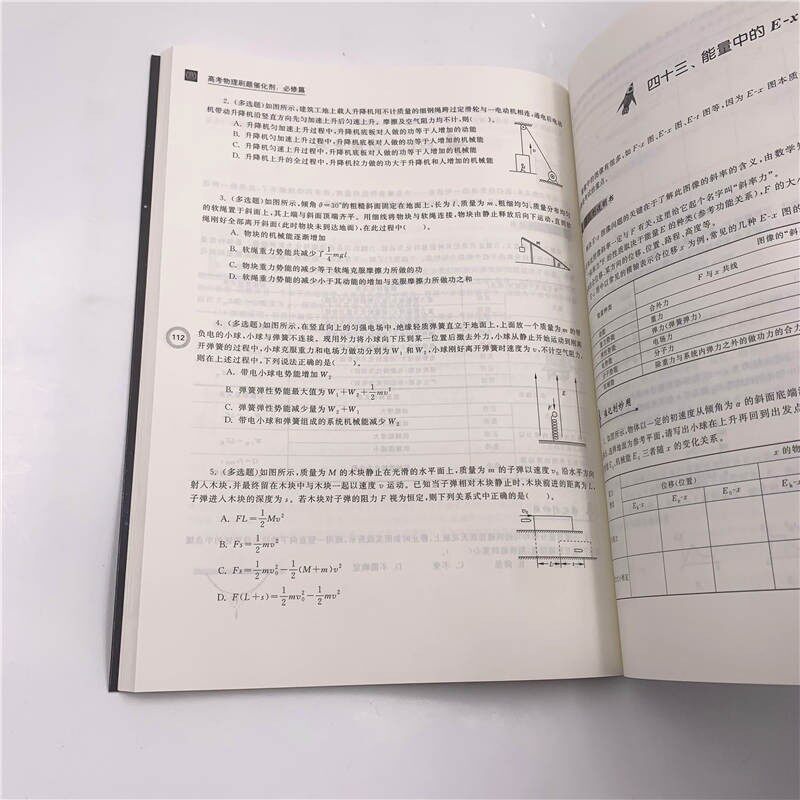 高考物理刷题催化剂：必修篇
2. (多选题)如图所示,建筑工地上载人升降机用不计质量的细钢绳跨过定滑轮与一电动机相连,通电后电动
机带动升降机沿竖直方向先匀加速上升后匀速上升。摩擦及空气阻力均不计,则(　　)。
A. 升降机匀加速上升过程中,升降机底板对人做的功等于人增加的动能
B. 升降机匀加速上升过程中,升降机底板对人做的功等于人增加的机械能
C. 升降机匀速上升过程中,升降机底板对人做的功等于人增加的机械能
D. 升降机上升的全过程中,升降机拉力做的功大于升降机和人增加的机械能
3. (多选题)如图所示,倾角 θ=30°的粗糙斜面固定在地面上,长为 l、质量为 m、粗细均匀、质量分布均匀
的软绳置于斜面上,其上端与斜面顶端齐平。用细线将物块与软绳连接,物块由静止释放后向下运动,直到软
绳刚好全部离开斜面(此时物块未到达地面),在此过程中(　　)。
A. 物块的机械能逐渐增加
B. 软绳重力势能共减少了1/4mgl
C. 物块重力势能的减少等于软绳克服摩擦力所做的功
D. 软绳重力势能的减少小于其动能的增加与克服摩擦力所做功之和
112
4. (多选题)如图所示,在竖直向上的匀强电场中,绝缘轻质弹簧直立于地面上,上面放一个质量为 m 的带
负电的小球,小球与弹簧不连接。现用外力将小球向下压到某一位置后撤去外力,小球从静止开始运动到刚离
开弹簧的过程中,小球克服重力和电场力做功分别为 W₁ 和 W₂,小球刚好离开弹簧时速度为 v,不计空气阻力,
则在上述过程中,下列说法正确的是(　　)。
A. 带电小球电势能增加 W₂
B. 弹簧弹性势能最大值为 W₁+W₂+1/2mv²
C. 弹簧弹性势能减少量为 W₂+W₁
D. 带电小球和弹簧组成的系统机械能减少 W₂
E
5. (多选题)如图所示,质量为 M 的木块静止在光滑的水平面上,质量为 m 的子弹以速度 v₀ 沿水平方向
射入木块,并最终留在木块中与木块一起以速度 v 运动。已知当子弹相对木块静止时,木块前进的距离为 L,
子弹进入木块的深度为 s。若木块对子弹的阻力 F 视为恒定,则下列关系式中正确的是(　　)。
A. FL=1/2Mv²
B. Fs=1/2mv²
C. Fs=1/2mv₀²-1/2(M+m)v²
D. F(L+s)=1/2mv₀²-1/2mv²
L
s
四十三、能量中的 E-x
如 F-x 图、E-x 图、E-t 图等,因为 E-x 图本质
图像问题的关键在于了解此图像的斜率的含义,由数学知
斜率一定与 F 有关,这里给它起个名字叫“斜率力”。
F 的性质取决于能量 E 的种类(参考功能关系),F 的大小
方向的位移、位置、路程、高度等。
常见的横轴表示合位移 x 为例,常见的几种 E-x 图的
图像的“斜
F 与 x 共线
合外力
重力
弹力(弹簧弹力)
电场力
分子力
除重力与系统内弹力之外的做功力的合力
物体以一定的初速度从倾角为 α 的斜面底端
选择地面为参考平面,请写出小球在上升再回到出发点
机械能 E 三者随 x 的变化关系。
位移(位置)
x 的物
Eₖ-x
Eₚ-x
E₀-x
Eₖ-x